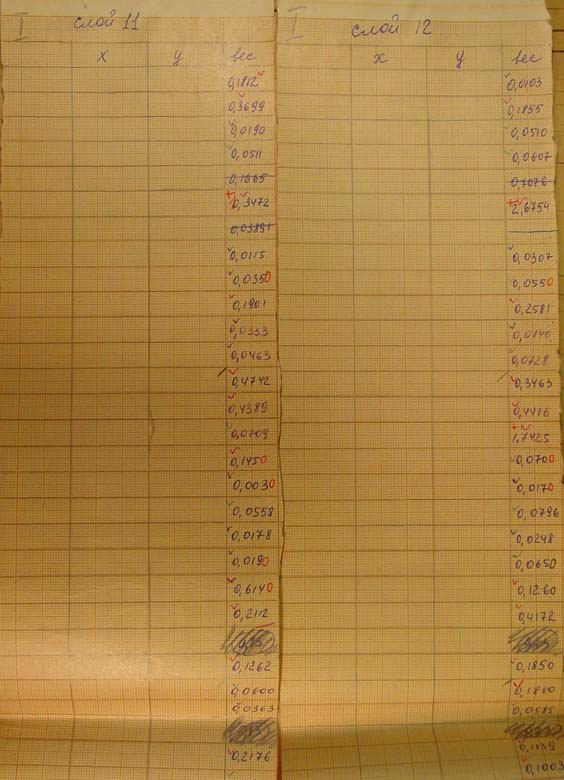 I слой 11
x y вес
0,1812
0,3699
0,0190
0,0511
0,1665
0,3472
0,03891
0,0115
0,0350
0,1901
0,0333
0,0463
0,4742
0,4389
0,0709
0,1450
0,0030
0,0558
0,0178
0,0190
0,6140
0,2112
0,1262
0,0600
0,0363
0,2176
I слой 12
x y вес
0,0103
0,1855
0,0510
0,0607
0,7076
2,6754
0,0307
0,0550
0,2581
0,0140
0,0728
0,3463
0,4416
1,7425
0,0700
0,0170
0,0796
0,0248
0,0650
0,1260
0,4172
0,1850
0,1810
0,0585
0,1139
0,1003